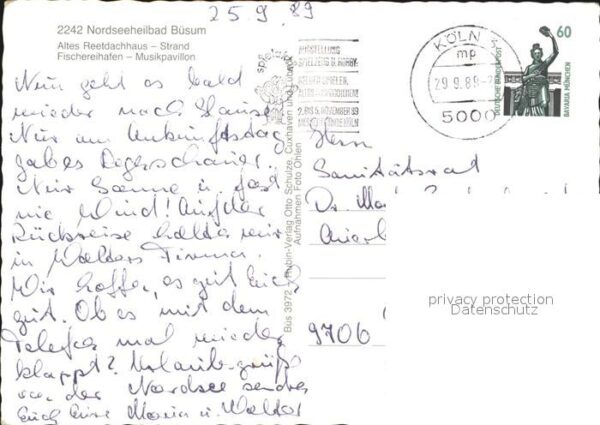 25.9.89
2242 Nordseeheilbad Büsum
Altes Reetdachhaus – Strand
Fischereihafen – Musikpavillon
Nun geht es bald
wieder nach Hause.
Nur am Ankunftstag
gab es Regenschauer.
Nur Sonne u. fast
nie Wind! Auf der
Rückreise halten wir
in Walters Firma.
Wir hoffen, es geht Euch
gut. Ob es mit dem
Telefon mal wieder
klappt? Urlaubsgrüße
von der Nordsee senden
Euch Eure Maria u. Walter
Büs 3972 Rubin-Verlag Otto Schulze, Cuxhaven und Lübeck
Aufnahmen Foto Ohlen
KÖLN 3
mp
29.9.89
5000
60
DEUTSCHE BUNDESPOST
BAVARIA MÜNCHEN
Herrn
Sanitätsrat
Dr.
9706
privacy protection
Datenschutz